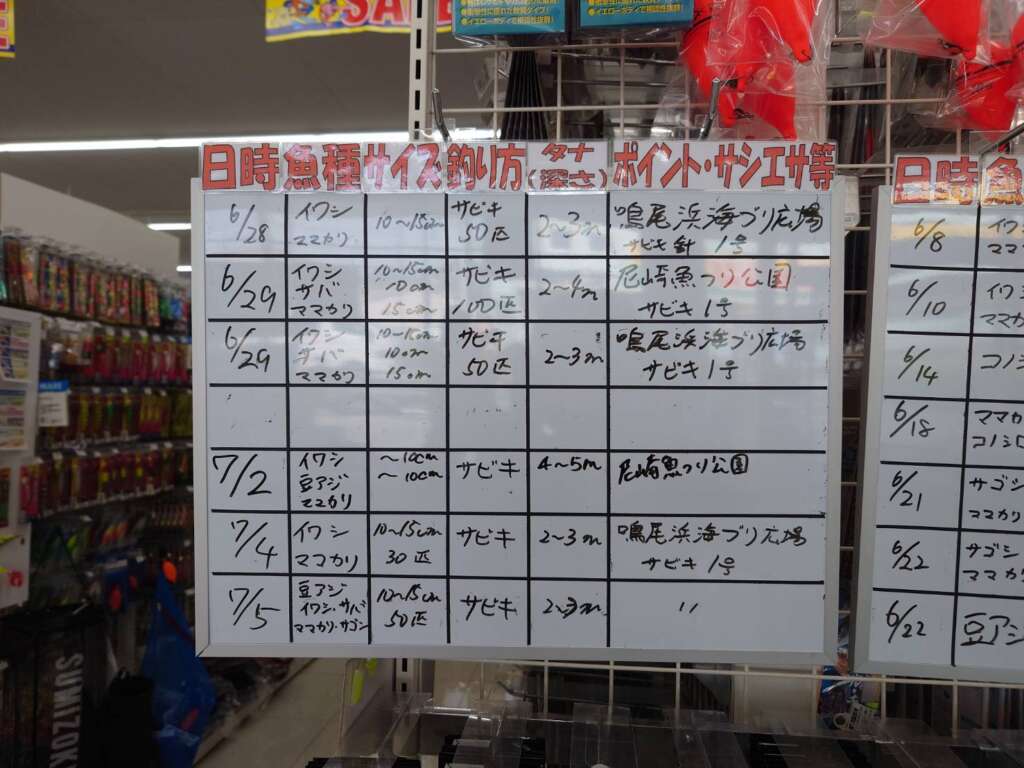 SALE
日時 魚種 サイズ 釣り方 タナ(深さ) ポイント・サシエサ等
6/28 イワシ 10～15cm サビキ 2～3m 鳴尾浜海づり広場
ママカリ 50匹 サビキ針 1号
6/29 イワシ 10～15cm サビキ 2～4m 尼崎魚つり公園
サバ 10cm
ママカリ 15cm 100匹 サビキ 1号
6/29 イワシ 10～15cm サビキ 2～3m 鳴尾浜海づり広場
サバ 10cm
ママカリ 15cm 50匹 サビキ 1号
7/2 イワシ ～10cm サビキ 4～5m 尼崎魚つり公園
豆アジ ～10cm
ママカリ
7/4 イワシ 10～15cm サビキ 2～3m 鳴尾浜海づり広場
ママカリ 30匹 サビキ 1号
7/5 豆アジ 10～15cm サビキ 2～3m 〃
イワシ・サバ 50匹
ママカリ・サゴシ
日時
6/8
6/10
ママカ
6/14 コノシ
6/18 ママカリ
コノシロ
6/21 サゴシ
ママカリ
6/22 サゴシ
ママカリ
6/22 豆アジ
SUMIZOK